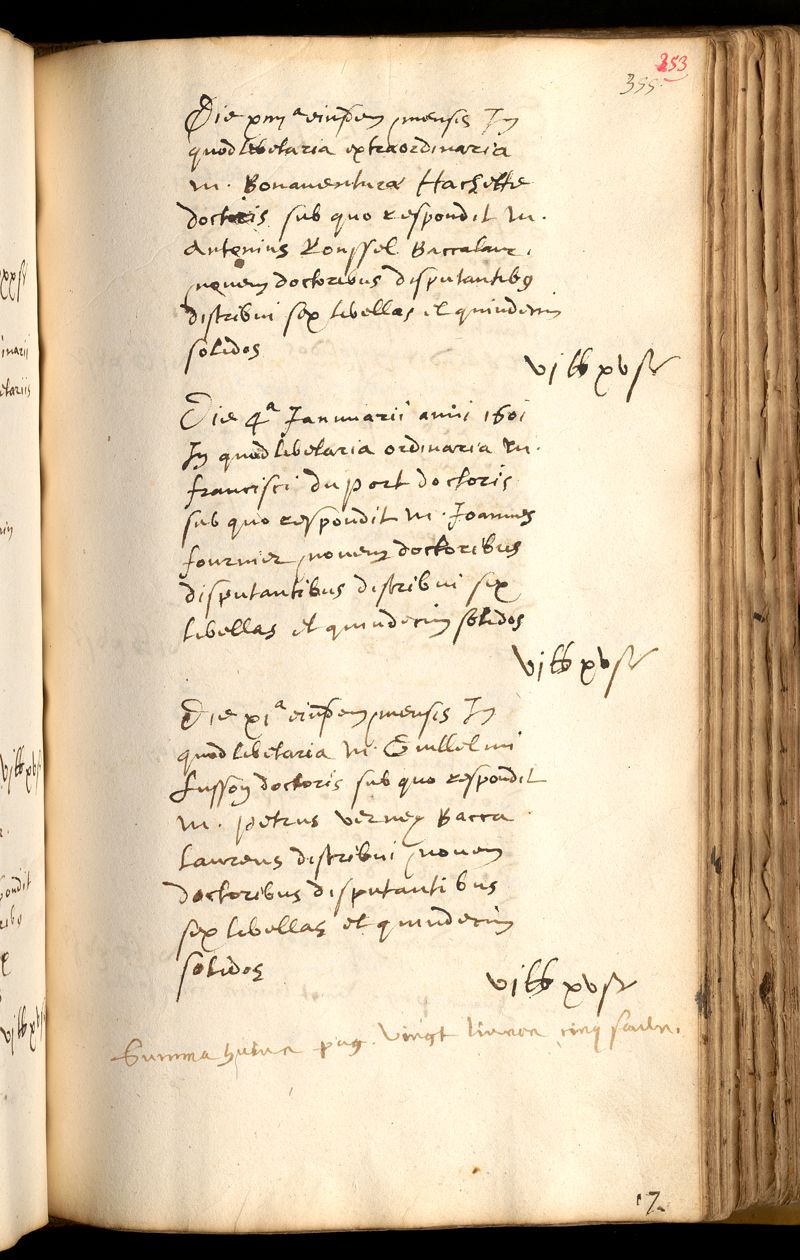 353
355
Die xiiiª eiusdem mensis In
quodlibetaria extraordinaria
M. Bonaventuræ Hachette
doctoris sub quo respondit M.
Antonius Roussel Baccalaur.
novem doctoribus disputantibus
distribui sex libellas et quindecim
solidos
vi lb xv st
Die 4ª Januuarii anni 1601
In quodlibetaria ordinaria M.
francisci du port doctoris
sub quo respondit M. Joannes
fournier novem doctoribus
disputantibus distribui sex
libellas et quindecim solidos
vi lb xv st
Die xiª eiusdem mensis In
quodlibetaria M. Guillelmi
Lusson doctoris sub quo respondit
M. petrus verney Bacca
laureus distribui novem
doctoribus disputantibus
sex libellas et quindecim
solidos
vi lb xv st
Summa huius pag. vingt cinq
17